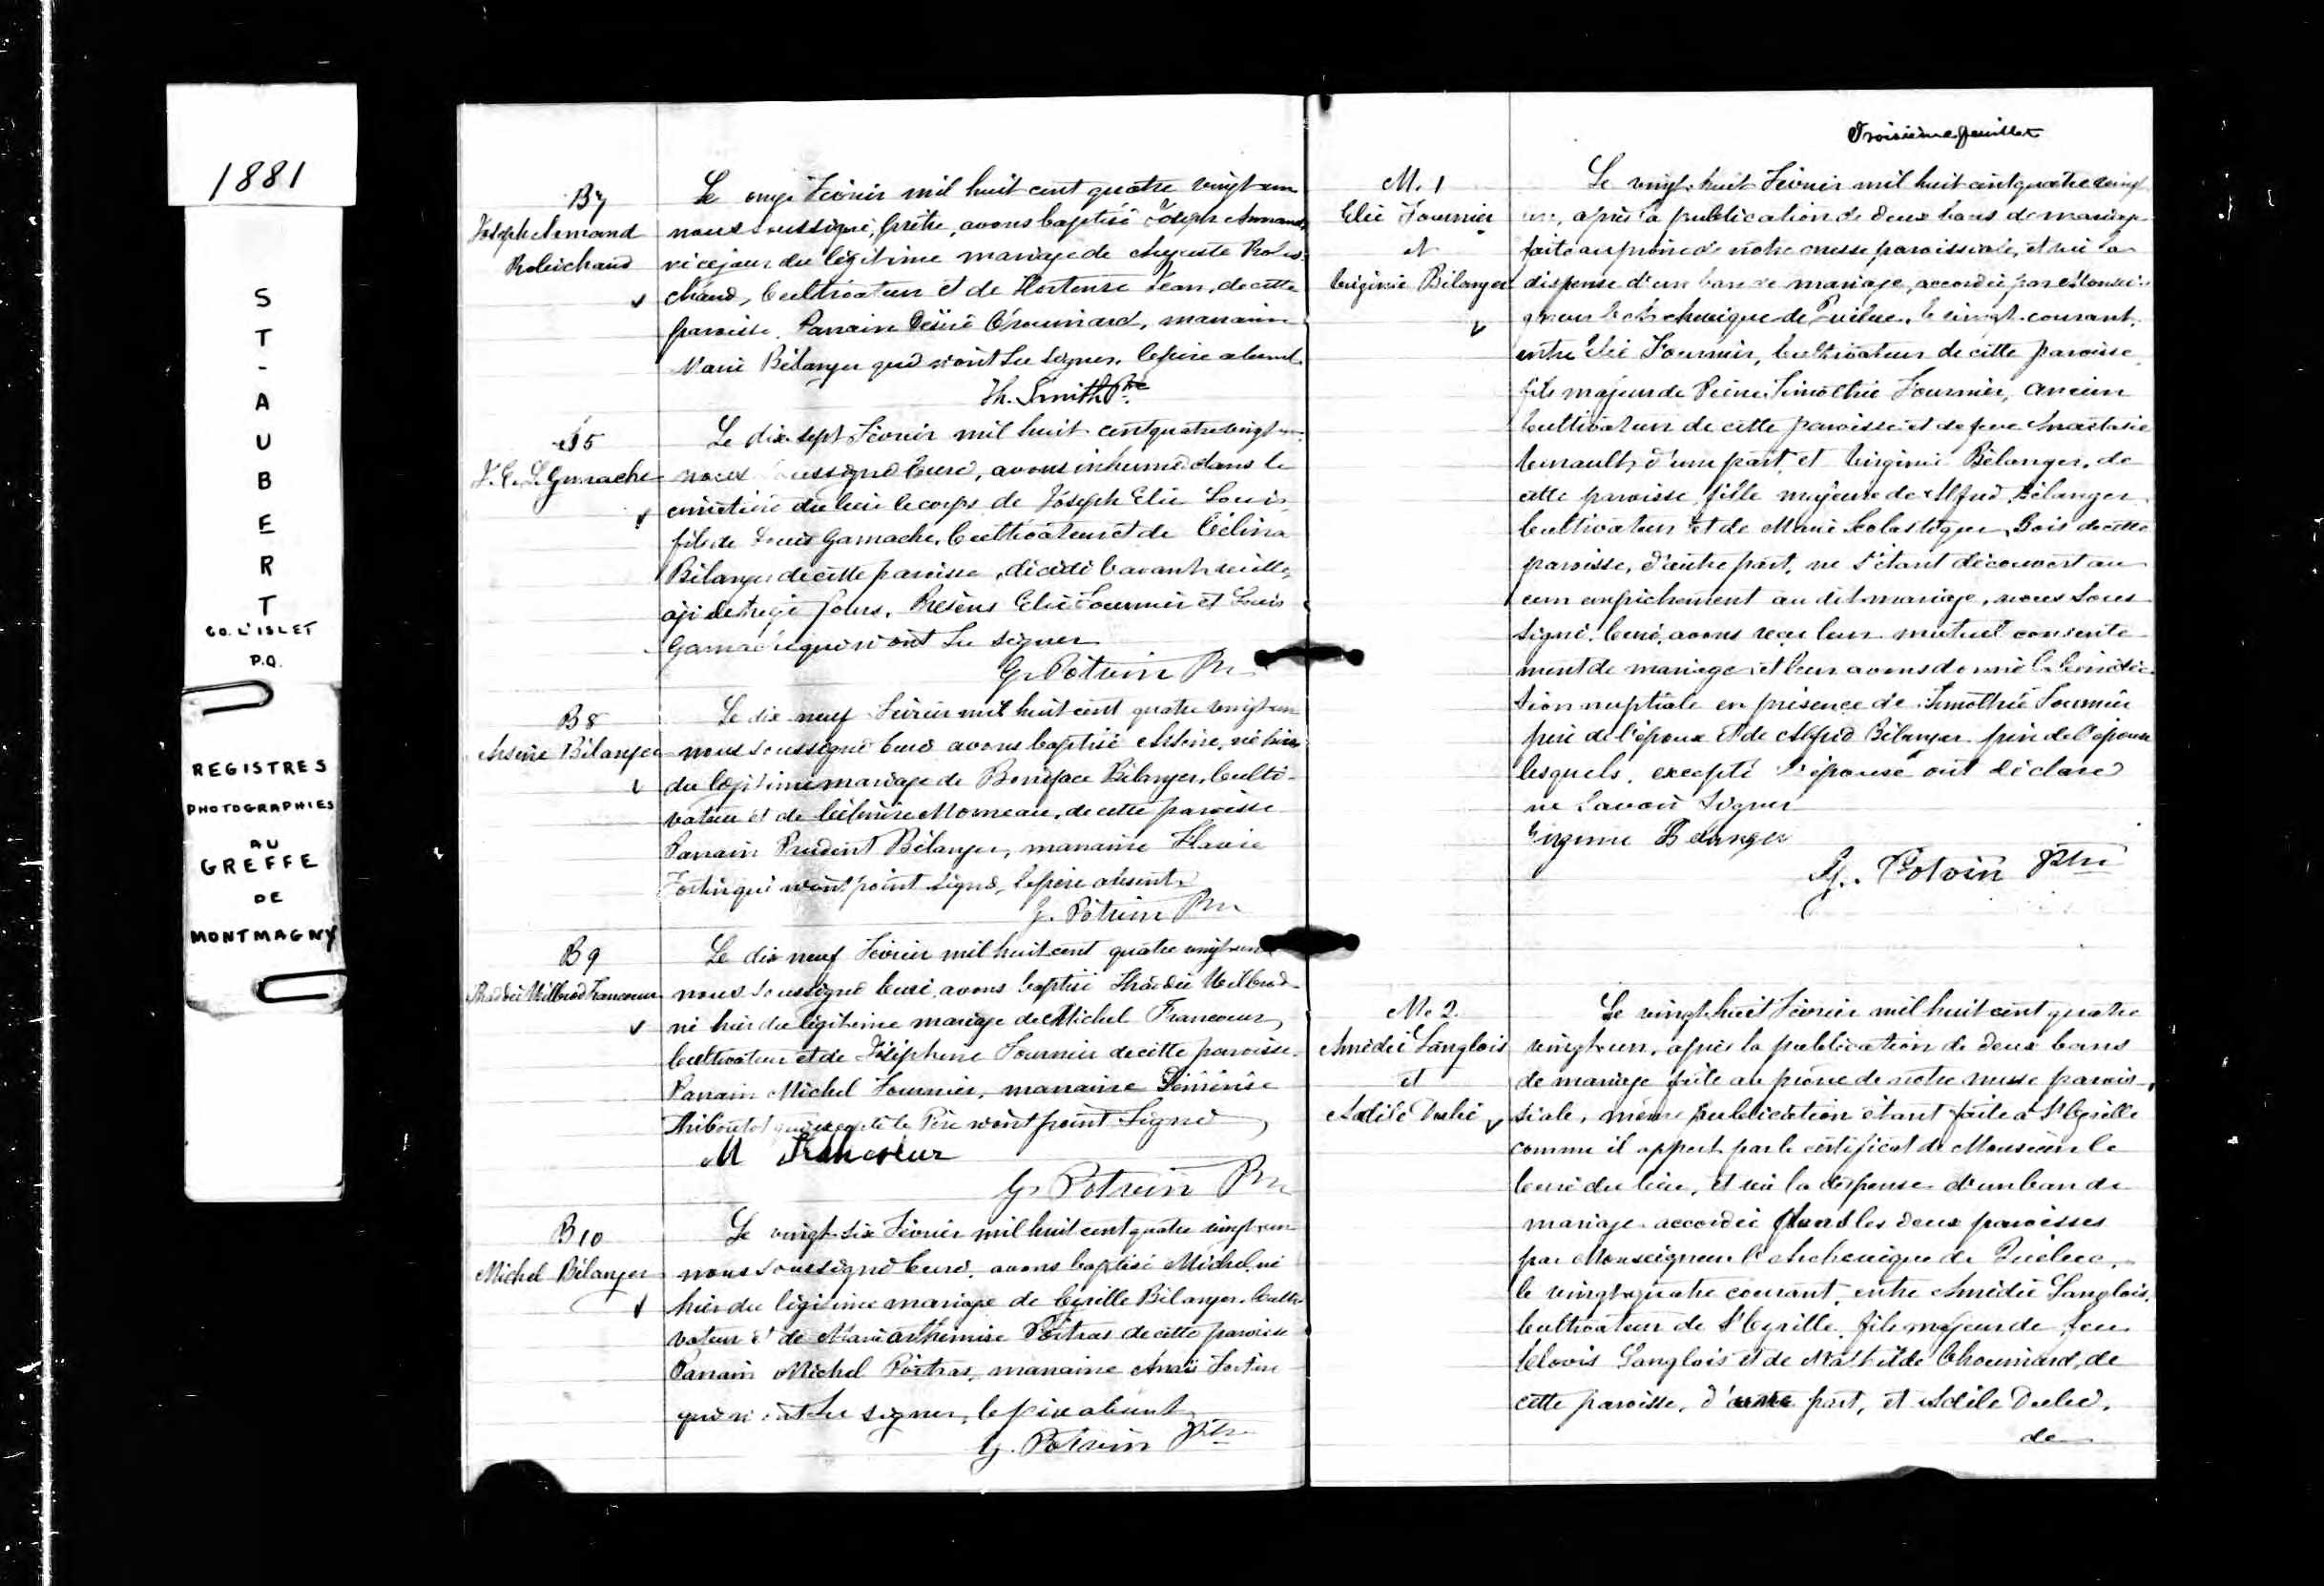 1881
ST-AUBERT
CO. L'ISLET
P.Q.
REGISTRES
PHOTOGRAPHIES
AU
GREFFE
DE
MONTMAGNY
B7
Joseph Armand
Robichaud
Le onze Février mil huit cent quatre vingt un
nous soussigné, prêtre, avons baptisé Joseph Armand,
né ce jour du légitime mariage de Auguste Robi-
chaud, Cultivateur et de Hortense Jean, de cette
paroisse. Parrain Désiré Chouinard, marraine
Marie Bélanger qui n'ont su signer. le père absent.
Th. Smith Ptre
S5
J. E. L. Gamache
Le dix sept Février mil huit cent quatre vingt un
nous soussigné Curé, avons inhumé dans le
cimetière du lieu le corps de Joseph Elie Louis,
fils de Louis Gamache, Cultivateur et de Célina
Bélanger de cette paroisse, décédé l'avant veille,
agé de treize jours. Présens Elie Fournier et Louis
Gamache qui n'ont su signer
G. Potvin Ptr
B8
Arsène Bélanger
Le dix neuf Février mil huit cent quatre vingt un
nous soussigné Curé avons baptisé Arsène, né hier
du légitime mariage de Boniface Bélanger, Culti-
vateur et de Morneau, de cette paroisse
Parrain Prudent Bélanger, marraine Flavie
Fortin qui n'ont point signé, le père absent.
G. Potvin Ptr
B9
Thaddée Wilbrod Francoeur
Le dix neuf Février mil huit cent quatre vingt un
nous soussigné Curé, avons baptisé Thaddée Wilbrod
né hier du légitime mariage de Michel Francoeur,
Cultivateur et de Joséphine Fournier de cette paroisse.
Parrain Michel Fournier, marraine Démérise
Thiboutot qui excepté le Père n'ont point signé
M Francoeur
G. Potvin Ptr
B10
Michel Bélanger
Le vingt-six Février mil huit cent quatre vingt un
nous soussigné Curé, avons baptisé Michel, né
hier du légitime mariage de Cyrille Bélanger, Culti-
vateur et de Marie Arthémise Poitras de cette paroisse
Parrain Michel Poitras, marraine Anaïs Fortin
qui n'ont su signer, le père absent
G. Potvin Ptr
Troisième feuillet
M. 1
Elie Fournier
et
Virginie Bélanger
Le vingt-huit Février mil huit cent quatre vingt
un, après la publication de deux bans de mariage
faite au prône de notre messe paroissiale, et vu la
dispense d'un ban de mariage, accordée par Monsei-
gneur l'Archevêque de Québec, le vingt courant,
entre Elie Fournier, Cultivateur de cette paroisse
fils majeur de Pierre Timothée Fournier, ancien
Cultivateur de cette paroisse et de feue Anastasie
d'une part, et Virginie Bélanger, de
cette paroisse, fille majeure de Alfred Bélanger
Cultivateur et de Marie Scolastique Bois de cette
paroisse, d'autre part, ne s'étant découvert au
cun empêchement au dit mariage, nous sous
signé, Curé, avons reçu leur mutuel consente
ment de mariage et leur avons donné la bénédic-
tion nuptiale en présence de Timothée Fournier
père de l'époux et de Alfred Bélanger père de l'épouse
lesquels, excepté l'épouse ont déclaré
ne savoir signer
Virginie Belanger
G. Potvin Ptre
M. 2.
Amédée Langlois
et
Adèle Dubé
Le vingt-huit Février mil huit cent quatre
vingt-un, après la publication de deux bans
de mariage faite au prône de notre messe parois-
siale, même publication étant faite à St Cyrille
comme il appert par le certificat de Monsieur le
Curé du lieu, et vu la dispense d'un ban de
mariage accordée dans les deux paroisses
par Monseigneur l'Archevêque de Québec,
le vingt-quatre courant, entre Amédée Langlois,
Cultivateur de St Cyrille, fils majeur de feu
Clovis Langlois et de Mathilde Chouinard, de
cette paroisse, d'une part, et Adèle Dubé,
de